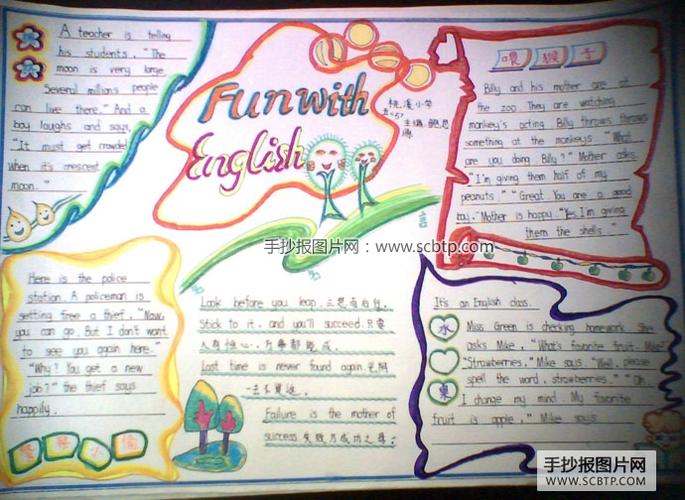 A teacher is telling
his students, "The
moon is very large
Several millions people
can live there." And a
boy laughs and says,
"It must get crowded
when it's crescent
moon."
Fun with
English
桃溪小学
主编:
喂猴子
Billy and his mother are at
the zoo. They are watching
monkey's acting. Billy throws throws
something at the monkeys. "What
are you doing Billy?" Mother asks.
"I'm giving them half of my
peanuts." "Great You are a good
boy." Mother is happy. "Yes I'm giving
them the shells."
手抄报图片网:www.scbtp.com
Here is the police
station. A policeman is
setting free a thief. "Now
you can go. But I don't want
to see you again here."
"Why? You get a new
job?" the thief says
happily.
警察小偷
Look before you leap. 三思而后行.
Stick to it, and you'll succeed. 只要
人有恒心,万事都能成.
Lost time is never found again.
一去不复返.
Failure is the mother of
success 失败乃成功之母.
It's an English class.
Miss Green is checking homework. She
asks Mike, "What's favorite fruit, Mike?"
"Strawberries." Mike says. "Well, please
spell the word, strawberries." "Oh,
I change my mind. My favorite
fruit is apple," Mike says
水
果
手抄报图片网
WWW.SCBTP.COM